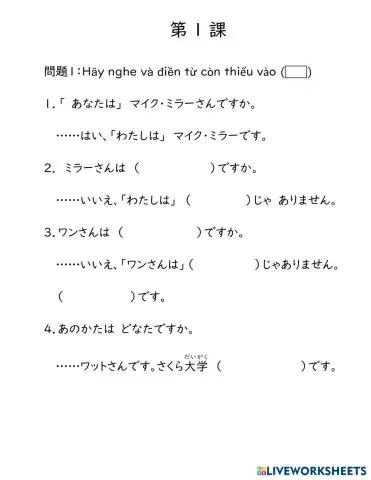 第 1 課
問題1:Hãy nghe và điền từ còn thiếu vào ( )
1.「 あなたは」 マイク・ミラーさんですか。
……はい、「わたしは」 マイク・ミラーです。
2. ミラーさんは ( )ですか。
……いいえ、「わたしは」 ( )じゃ ありません。
3.ワンさんは ( )ですか。
……いいえ、「ワンさんは」( )じゃありません。
( )です。
4.あのかたは どなたですか。
だいがく
……ワットさんです。さくら大学 ( )です。
LIVEWORKSHEETS